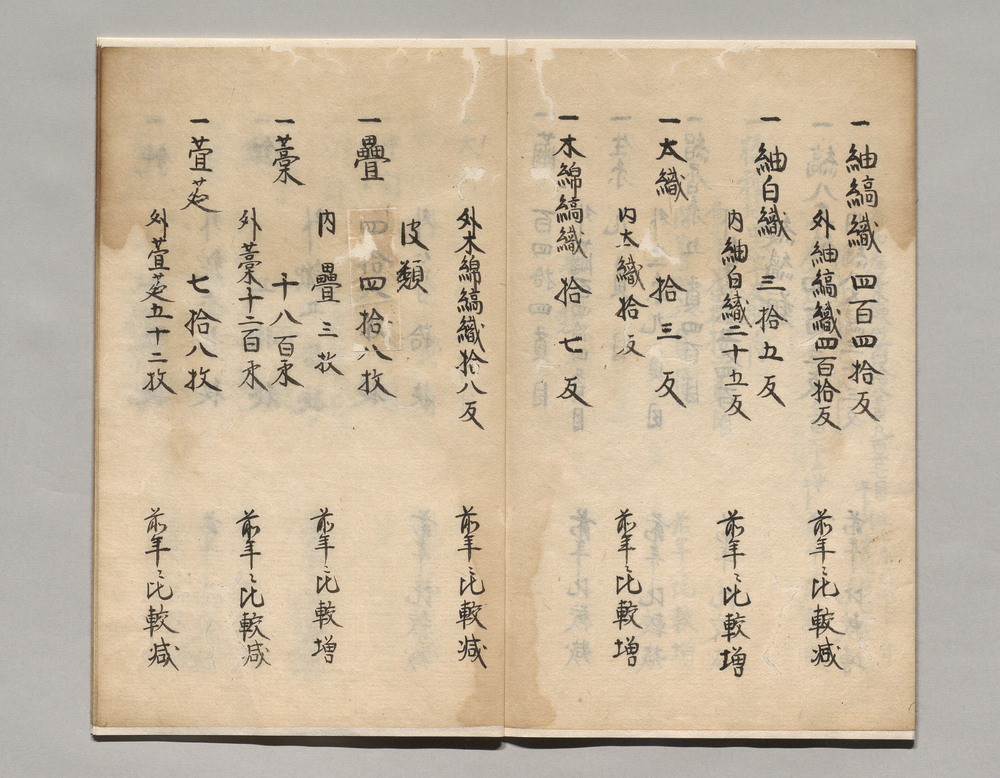 一 紬縞織 四百四拾反
外紬縞織四百拾反 前年ニ比較減
一 紬白織 三拾五反
内紬白織二十五反 前年ニ比較増
一 太織 拾三反
内太織拾反 前年ニ比較増
一 木綿縞織 拾七反
外木綿縞織拾八反 前年ニ比較減
皮類
一 畳 四拾八枚
内 畳 三枚 前年ニ比較増
一 藁 十八百束
外藁十二百束 前年ニ比較減
一 萓 七拾八枚
外萓五十二枚 前年ニ比較減